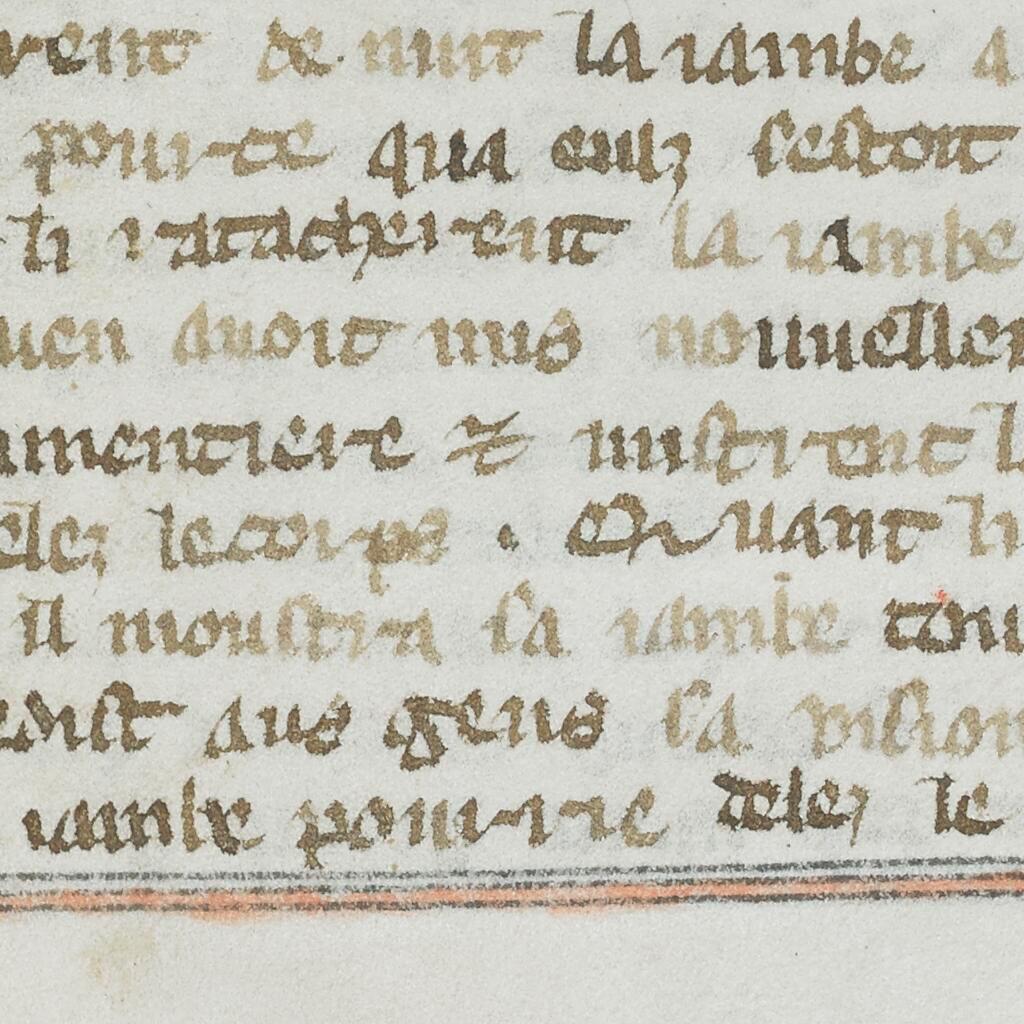 vent de nuit la iambe a
pource qua eulz sestoit
li i atachierent la iambe
uen auoit mis nouueller
amentiere ⁊ mistrent l
delez le cors . Quant li
il moustra sa iambe tou
edist aus gens sa vision
iambe pourrie delez le